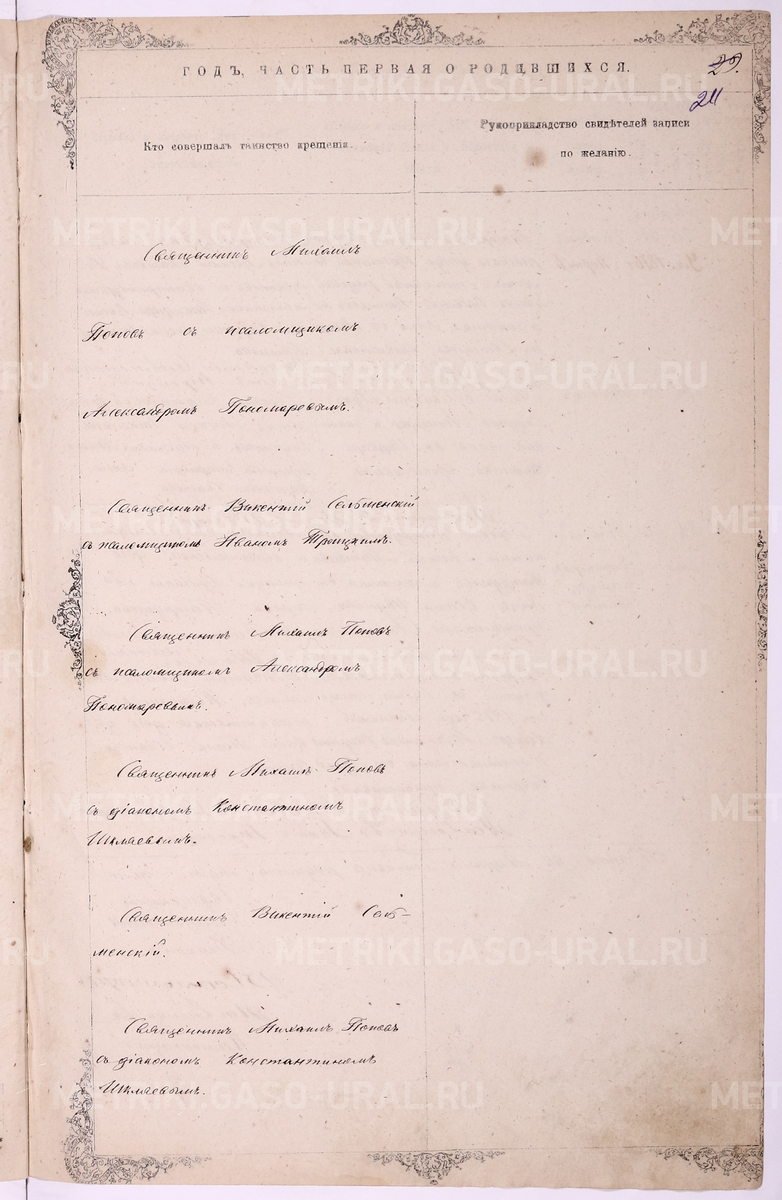 ГОДЪ, ЧАСТЬ ПЕРВАЯ О РОДИВШИХСЯ.
29.
211
Кто совершалъ таинство крещенія.
Рукоприкладство свидѣтелей записи
по желанію.
Священникъ Михаилъ
Поповъ съ псаломщикомъ
Александромъ Пономаревымъ.
Священникъ Викентій Селѣменскій
съ псаломщикомъ Иваномъ Троицкимъ.
Священникъ Михаилъ Поповъ
съ псаломщикомъ Александромъ
Пономаревымъ.
Священникъ Михаилъ Поповъ
съ діакономъ Константиномъ
Шкляевымъ.
Священникъ Викентій Селѣ-
менскій.
Священникъ Михаилъ Поповъ
съ діакономъ Константиномъ
Шкляевымъ.
METRIKI.GASO-URAL.RU